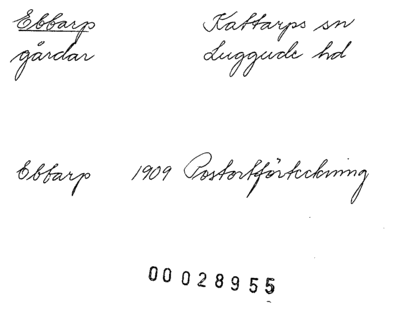 Ebbarp Kattarps sn
gårdar Luggude hd
Ebbarp 1909 Postortförteckning
00028955